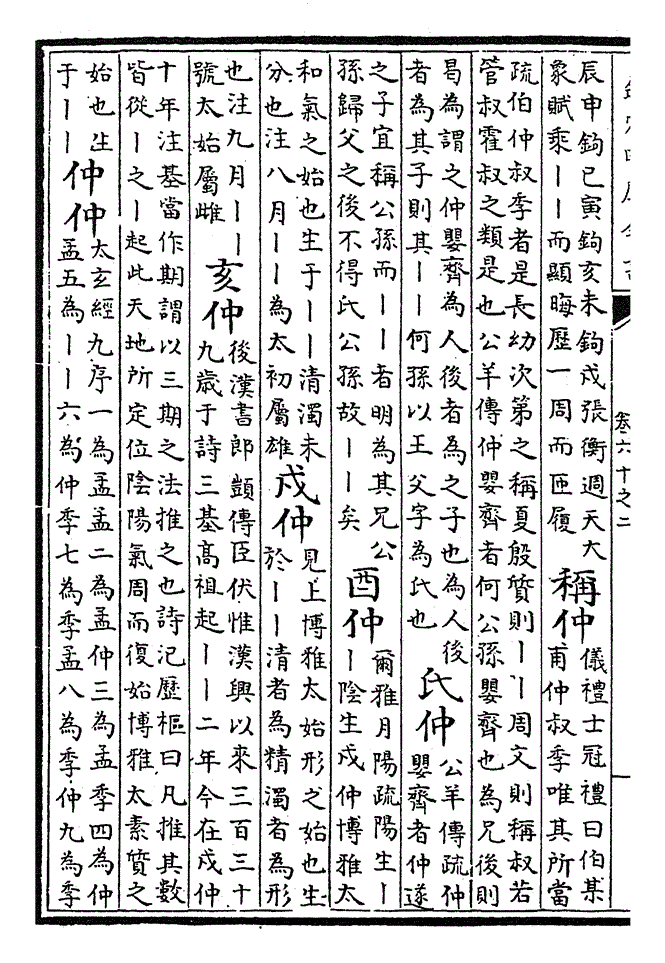 卷六十之二
辰申鉤巳寅鉤亥未鉤戌張衡週天大
象賦乘丨丨而顯晦歷一周而匝履
稱仲
儀禮士冠禮曰伯某
甫仲叔季唯其所當
疏伯仲叔季者是長幼次第之稱夏殷質則丨丨周文則稱叔若
管叔霍叔之類是也公羊傳仲嬰齊者何公孫嬰齊也為兄後則
曷為謂之仲嬰齊為人後者為之子也為人後
者為其子則其丨丨何孫以王父字為氏也
氏仲
公羊傳疏仲
嬰齊者仲遂
之子宜稱公孫而丨丨者明為其兄公
孫歸父之後不得氏公孫故丨丨矣
酉仲
爾雅月陽疏陽生丨
丨陰生戍仲博雅太
和氣之始也生于丨丨清濁未
分也注八月丨丨為太初屬雄
戍仲
見上博雅太始形之始也生
於丨丨清者為精濁者為形
也注九月丨丨
號太始屬雌
亥仲
後漢書郎顗傳臣伏惟漢興以來三百三十
九歲于詩三基高祖起丨丨二年今在戍仲
十年注基當作期謂以三期之法推之也詩汜歷樞曰凡推其數
皆從丨之丨起此天地所定位陰陽氣周而復始博雅太素質之
始也生
于丨丨
仲仲
太玄經九序一為孟孟二為孟仲三為孟季四為仲
孟五為丨丨六為仲季七為季孟八為季仲九為季